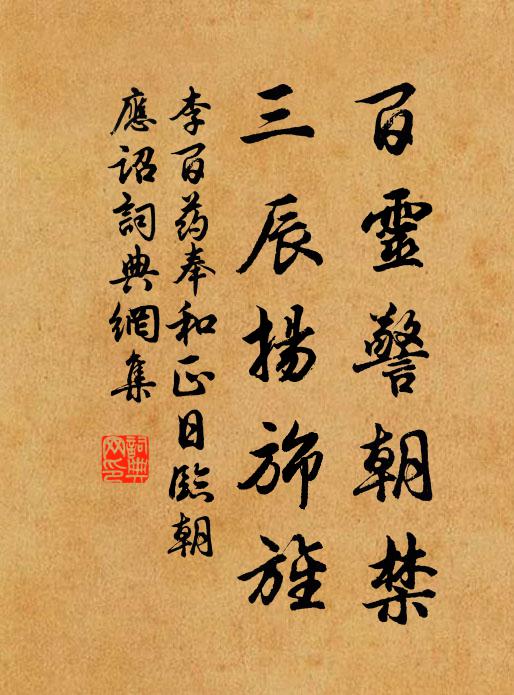 百靈警朝禁
三辰揚旂旌
李百药奉和正日臨朝
應詔詞典網集
詞典
网印